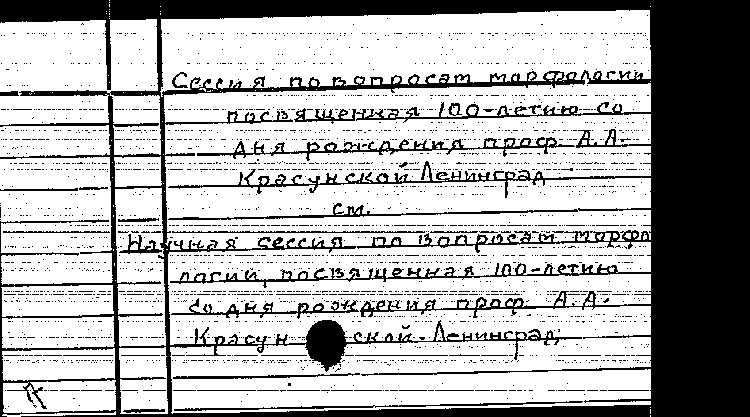 Сессия по вопросам морфологии
посвященная 100-летию со
дня рождения проф. А.А.
Красунской Ленинград
см.
Научная сессия по вопросам морфо
логии, посвященная 100-летию
со дня рождения проф. А.А.
Красунской. Ленинград,